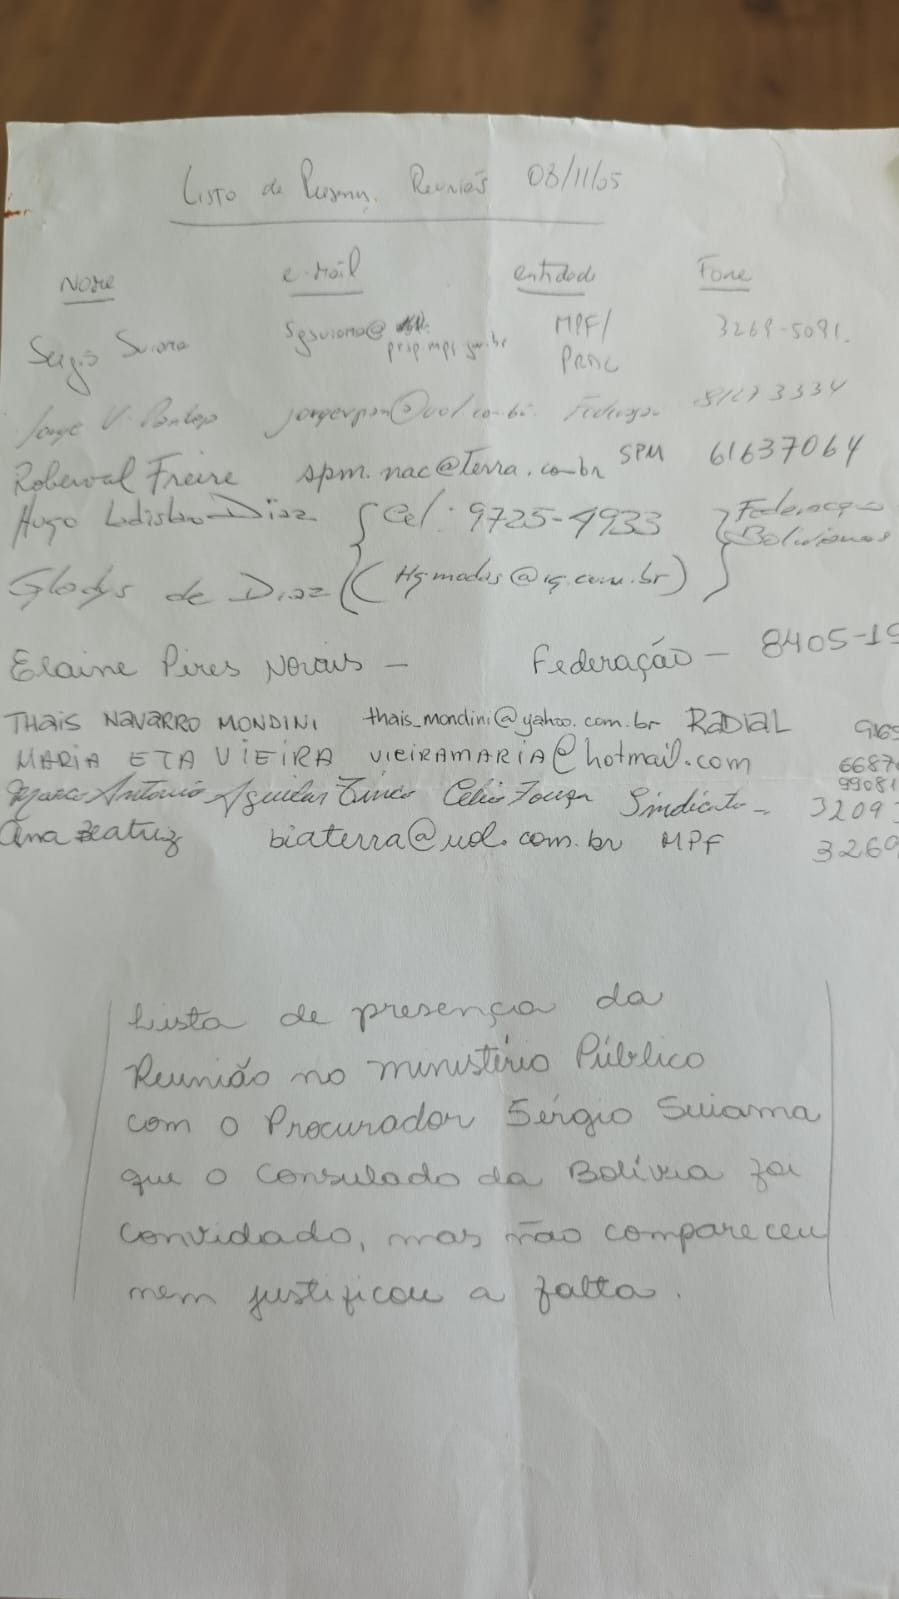 Listo de Presenç. Reunião 08/11/05
Nome e-mail entidade Fone
Sergio Suiama sgsuiama@ prsp.mpf.gov.br MPF/ PRDC 3269-5091.
Jorge V. @uol.com.br.
Roberval Freire spm.nac@terra.com.br SPM 61637064
Hugo Ladislao Diaz { Cel: 9725-4933 } Federação Bolivianos
Gladys de Diaz ( Hgmodas@ig.com.br )
Elaine Pires Novais – Federação – 8405-19
THAIS NAVARRO MONDINI thais_mondini@yahoo.com.br RADIAL
MARIA ETA VIEIRA VIEIRAMARIA@hotmail.com 6687
99081
Marco Antonio Aguilar Célio Souza Sindicato – 3209
Ana Beatriz biaterra@uol.com.br MPF 3269
Lista de presença da
Reunião no ministério Público
com o Procurador Sérgio Suiama
que o Consulado da Bolívia foi
convidado, mas não compareceu
nem justificou a falta.